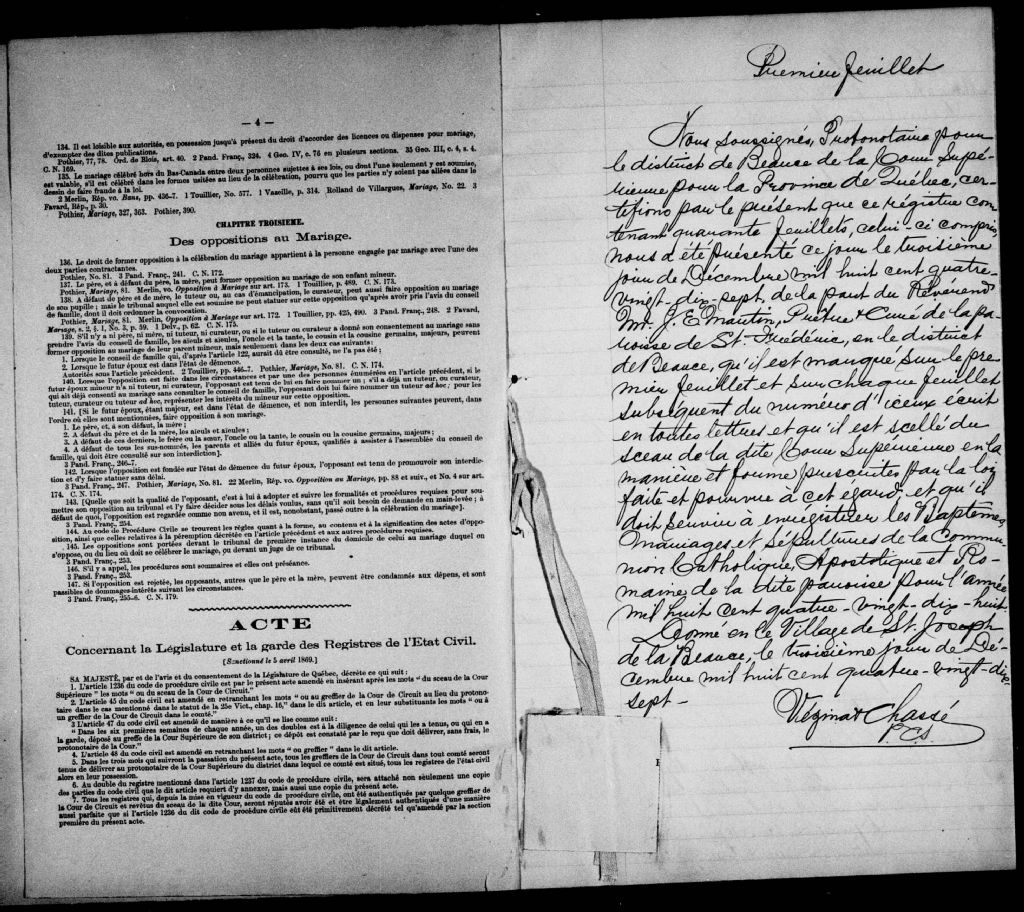 — 4 —
134. Il est loisible aux autorités, en possession jusqu'à présent du droit d'accorder des licences ou dispenses pour mariage,
d'exempter des dites publications.
Pothier, 77, 78. Ord. de Blois, art. 40. 2 Pand. Franç., 324. 4 Geo. IV, c. 76 en plusieurs sections. 35 Geo. III, c. 4, s. 4.
C. N. 169.
135. Le mariage célébré hors du Bas-Canada entre deux personnes sujettes à ses lois, ou dont l'une seulement y est soumise,
est valable, s'il est célébré dans les formes usitées au lieu de la célébration, pourvu que les parties n'y soient pas allées dans le
dessin de faire fraude à la loi.
2 Merlin, Rép. vo. Bans, pp. 436-7. 1 Touillier, No. 577. 1 Vazeille, p. 314. Rolland de Villargues, Mariage, No. 22. 3
Favard, Rép., p. 30.
Pothier, Mariage, 327, 363. Pothier, 390.
CHAPITRE TROISIEME.
Des oppositions au Mariage.
136. Le droit de former opposition à la célébration du mariage appartient à la personne engagée par mariage avec l'une des
deux parties contractantes.
Pothier, No. 81. 3 Pand. Franç., 241. C. N. 172.
137. Le père, et à défaut du père, la mère, peut former opposition au mariage de son enfant mineur.
Pothier, Mariage, 81. Merlin, vo. Opposition à Mariage sur art. 173. 1 Touillier, p. 489. C. N. 173.
138. A défaut de père et de mère, le tuteur ou, au cas d'émancipation, le curateur, peut aussi faire opposition au mariage
de son pupille; mais le tribunal auquel elle est soumise ne peut statuer sur cette opposition qu'après avoir pris l'avis du conseil
de famille, dont il doit ordonner la convocation.
Pothier, Mariage, 81. Merlin, Opposition à Mariage sur art. 172. 1 Touillier, pp. 425, 490. 3 Pand. Franç., 248. 2 Favard,
Mariage, s. 2, § 1, No. 3, p. 59. 1 Delv., p. 62. C. N. 175.
139. S'il n'y a ni père, ni mère, ni tuteur, ni curateur, ou si le tuteur ou curateur a donné son consentement au mariage sans
prendre l'avis du conseil de famille, les aïeuls et aïeules, l'oncle et la tante, le cousin et la cousine germains, majeurs, peuvent
former opposition au mariage de leur parent mineur, mais seulement dans les deux cas suivants:
1. Lorsque le conseil de famille qui, d'après l'article 122, aurait dû être consulté, ne l'a pas été;
2. Lorsque le futur époux est dans l'état de démence.
Autorités sous l'article précédent. 2 Touillier, pp. 446-7. Pothier, Mariage, No. 81. C. N. 174.
140. Lorsque l'opposition est faite dans les circonstances et par une des personnes énumérées en l'article précédent, si le
futur époux mineur n'a ni tuteur, ni curateur, l'opposant est tenu de lui en faire nommer un; s'il a déjà un tuteur, ou curateur,
qui ait déjà consenti au mariage sans consulter le conseil de famille, l'opposant doit lui faire nommer un tuteur ad hoc; pour les
tuteur, curateur ou tuteur ad hoc, représenter les intérêts du mineur sur cette opposition.
141. [Si le futur époux, étant majeur, est dans l'état de démence, et non interdit, les personnes suivantes peuvent, dans
l'ordre où elles sont mentionnées, faire opposition à son mariage.
1. Le père, et, à son défaut, la mère;
2. A défaut du père et de la mère, les aïeuls et aïeules;
3. A défaut de ces derniers, le frère ou la sœur, l'oncle ou la tante, le cousin ou la cousine germains, majeurs;
4. A défaut de tous les sus-nommés, les parents et alliés du futur époux, qualifiés à assister à l'assemblée du conseil de
famille, qui doit être consulté sur son interdiction].
3 Pand. Franç., 246-7.
142. Lorsque l'opposition est fondée sur l'état de démence du futur époux, l'opposant est tenu de promouvoir son interdic-
tion et d'y faire statuer sans délai.
3 Pand. Franç., 247. Pothier, Mariage, No. 81. 22 Merlin, Rép. vo. Opposition au Mariage, pp. 88 et suiv., et No. 4 sur art.
174. C. N. 174.
143. [Quelle que soit la qualité de l'opposant, c'est à lui à adopter et suivre les formalités et procédures requises pour sou-
mettre son opposition au tribunal et l'y faire décider sous les délais voulus, sans qu'il soit besoin de demande en main-levée; à
défaut de quoi, l'opposition est regardée comme non avenue, et il est, nonobstant, passé outre à la célébration du mariage].
3 Pand. Franç., 254.
144. Au code de Procédure Civile se trouvent les règles quant à la forme, au contenu et à la signification des actes d'oppo-
sition, ainsi que celles relatives à la péremption décrétée en l'article précédent et aux autres procédures requises.
145. Les oppositions sont portées devant le tribunal de première instance du domicile de celui au mariage duquel on
s'oppose, ou du lieu où doit se célébrer le mariage, ou devant un juge de ce tribunal.
3 Pand. Franç., 253.
146. S'il y a appel, les procédures sont sommaires et elles ont préséance.
3 Pand. Franç., 253.
147. Si l'opposition est rejetée, les opposants, autres que le père et la mère, peuvent être condamnés aux dépens, et sont
passibles de dommages-intérêts suivant les circonstances.
3 Pand. Franç., 255-6. C. N. 179.
ACTE
Concernant la Législature et la garde des Registres de l'Etat Civil.
[Sanctionné le 5 avril 1869.]
SA MAJESTÉ, par et de l'avis et du consentement de la Législature de Québec, décrète ce qui suit:
1. L'article 1236 du code de procédure civile est par le présent acte amendé en insérant après les mots "du sceau de la Cour
Supérieure" les mots "ou du sceau de la Cour de Circuit."
2. L'article 45 du code civil est amendé en retranchant les mots "ou au greffier de la Cour de Circuit au lieu du protono-
taire dans le cas mentionné dans le statut de la 25e Vict., chap. 16," dans le dit article, et en leur substituants les mots "ou à
un greffier de la Cour de Circuit dans le comté."
3 L'article 47 du code civil est amendé de manière à ce qu'il se lise comme suit:
"Dans les six premières semaines de chaque année, un des doubles est à la diligence de celui qui les a tenus, ou qui en a
la garde, déposé au greffe de la Cour Supérieure de son district; ce dépôt est constaté par le reçu que doit délivrer, sans frais, le
protonotaire de la Cour."
4. L'article 48 du code civil est amendé en retranchant les mots "on greffier" dans le dit article.
5. Dans les trois mois qui suivront la passation du présent acte, tous les greffiers de la Cour de Circuit dans tout comté seront
tenus de délivrer au protonotaire de la Cour Supérieure du district dans lequel ce comté est situé, tous les registres de l'état civil
alors en leur possession.
6. Au double du registre mentionné dans l'article 1237 du code de procédure civile, sera attaché non seulement une copie
des parties du code civil que le dit article requiert d'y annexer, mais aussi une copie du présent acte.
7. Tous les registres qui, depuis la mise en vigueur du code de procédure civile, ont été authentiqués par quelque greffier de
la Cour de Circuit et revêtus du sceau de la dite Cour, seront réputés avoir été et être légalement authentiqués d'une manière
aussi parfaite que si l'article 1236 du dit code de procédure civile eût été primitivement décrété tel qu'amendé par la section
première du présent acte.
Premier feuillet
Nous soussignés, Protonotaire pour
le district de Beauce de la Cour Supé-
rieure pour la Province de Québec, cer-
tifions par le présent que ce régistre con
tenant quarante feuillets, celui-ci compris,
nous a été présenté ce jour le troisième
jour de Décembre mil huit cent quatre-
vingt-dix-sept, de la part du Révérend
Mr. J. E. Martin, Prêtre & Curé de la pa-
roisse de St. Frédéric, en le district
de Beauce, qu'il est marqué sur le pre
mier feuillet et sur chaque feuillet
subséquent du numéro d'iceux écrit
en toutes lettres et qu'il est scellé du
sceau de la dite Cour Supérieure en la
manière et forme prescrites par la loi
faite et pourvue à cet egard, et qu'il
doit servir à enrégistrer les Baptêmes,
Mariages et Sépultures de la Commu-
nion Catholique, Apostolique et Ro-
maine de la dite paroisse pour l'année
mil huit cent quatre-vingt-dix-huit.
Donné en le Village de St. Joseph
de la Beauce, le troisième jour de Dé-
cembre mil huit cent quatre-vingt-dix
sept -
Vézina & Chassé
P.C.S